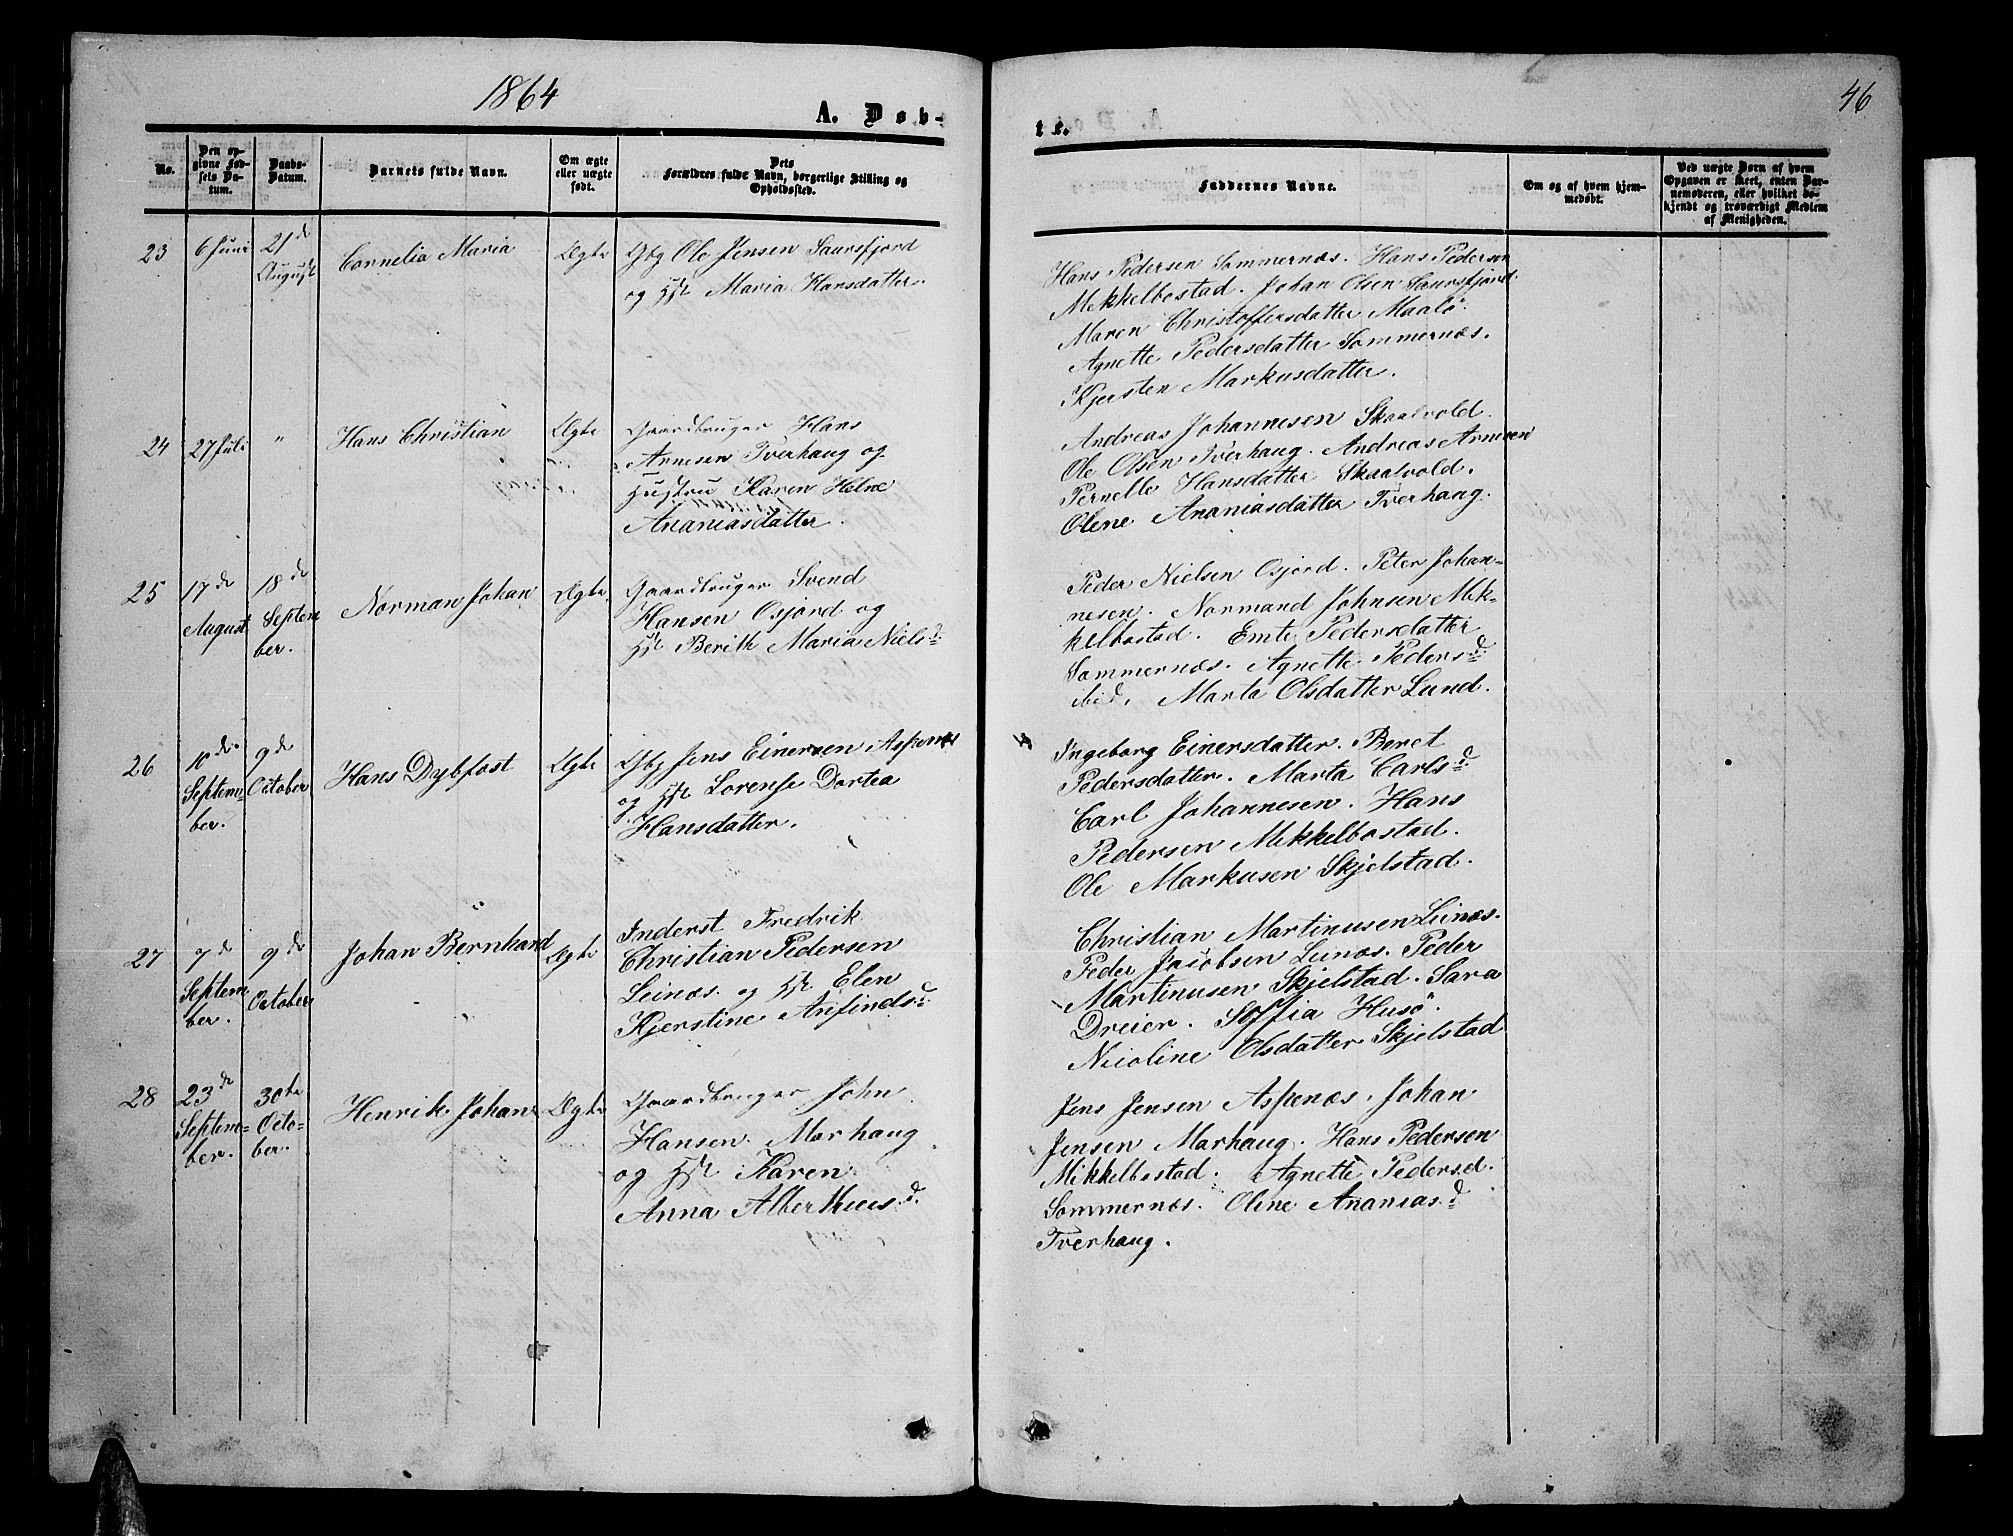 1864
A. Døb-
te.
46
No.
Den op-
givne Fød-
sels Da-
tum.
Daabs-
Datum.
Barnets fulde Navn.
Om ægte
eller uægte
født.
Dets
Forældres fulde Navn, borgerlige Stilling og
Opholdssted.
Faddernes Navne.
Om og af hvem hjem-
medøbt.
Ved uægte Børn af hvem
Opgaven er skeet, enten Bar-
nemoderen, eller hvilket be-
kjendt og troværdigt Medlem
af Menigheden.
23
6 Juni
21de
August
Cornelia Maria
Ægte
Gbg Ole Jensen Saursfjord
og Hst Maria Hansdatter.
Hans Pedersen Sommernæs. Hans Pedersen
Mekkelbostad. Johan Olsen Saursfjord.
Maren Christoffersdatter Maalö.
Agnette Pedersdatter Sommernæs.
Kjersten Markusdatter.
24
27 Juli
"
Hans Christian
Ægte
Gaardbruger Hans
Arnesen Tverhaug og
Hustru Karen Helne
Ananiasdatter.
Andreas Johannesen Skaalvold.
Ole Olsen Tverhaug. Andreas Arnesen
Pernelle Hansdatter Skaalvold.
Olene Ananiasdatter Tverhaug.
25
17de
August
18de
Septem
ber.
Norman Johan
Ægte
Gaardbruger Svend
Hansen Osjord og
Hst Berith Maria Nielsd.
Peder Nielsen Osjord. Peter Johan-
nesen. Normand Johnsen Mek-
kelbostad. Emte Pedersdatter
Sommernæs. Agnette Pedersd.
ibid. Marta Olsdatter Lund.
26
10de
Septem-
ber.
9de
October
Hans Dybfast
Ægte
Gbg Jens Einersen Aspenæs
og Hst Lorense Dortea
Hansdatter.
Ingeborg Einersdatter. Beret
Pedersdatter. Marta Carlsd.
Carl Johannesen. Hans
Pedersen Mekkelbostad.
Ole Markusen Skjelstad.
27
7de
Septem
ber.
9de
October
Johan Bernhard
Ægte
Inderst Fredrik
Christian Pedersen
Leinæs. og Hst Elen
Kjerstine Arifindsd.
Christian Martinusen Leinæs.
Peder Jacobsen Leinæs. Peder
Martinusen Skjelstad. Sara
Dreier. Soffia Husö.
Nicoline Olsdatter Skjelstad
28
23de
Septem-
ber.
30te
Octo-
ber.
Henrik Johan
Ægte
Gaardbruger John
Hansen Marhaug
og Hst Karen
Anna Alberthusd.
Jens Jensen Aspenæs. Johan
Jensen Marhaug. Hans Pedersen
Mikkelbostad. Agnette Pedersd.
Sommernæs. Oline Ananiasd.
Tverhaug.